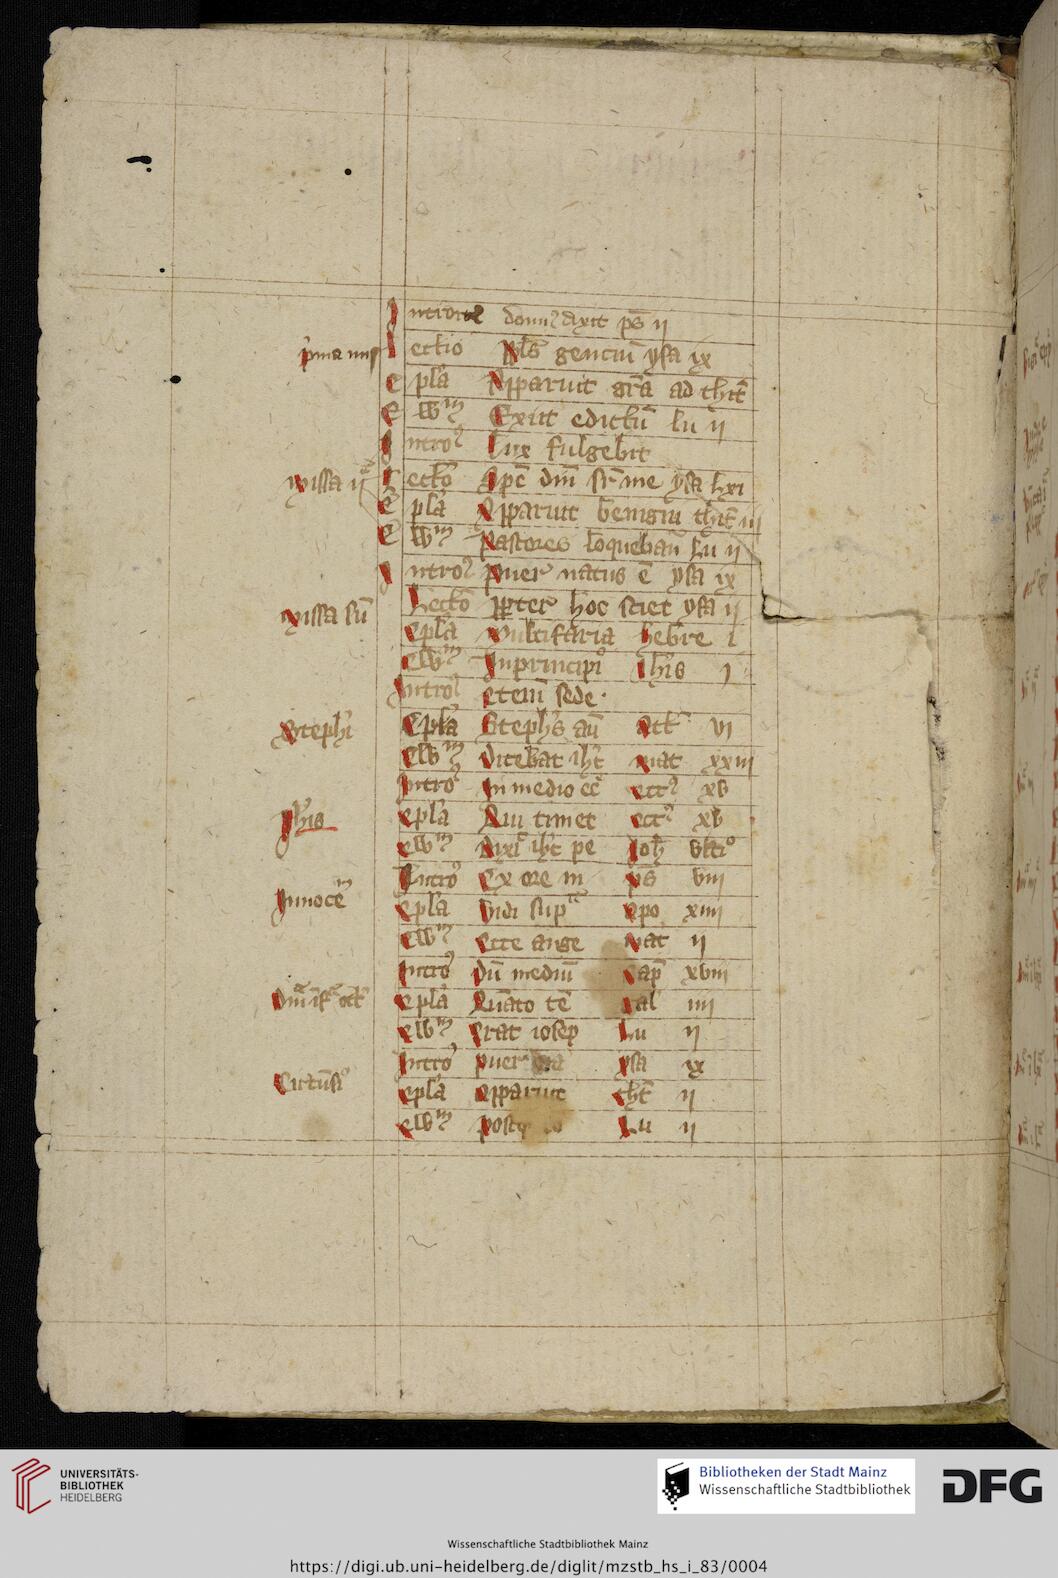 Introit9 domi9 dixit ps ij
p̃ma miss Lectio Pls̄ genciū ysa ix
Epl'a Apparuit gr̄a ad thit̄
Ewm Exiit edictū lu ij
Intro9 Lux fulgebit
Missa ija Lectō Spc̄ dm̄ sr̄ me ysa lxi
Epl'a Apparuit benigni thit̄ iij
Ewm Pastores loquebant̄ Lu ij
Intro9 Puer natus ē ysa ix
Missa sū Lectō Ppter hoc sciet ysa ij
Epl'a Multifaria hebre i
Ewm Inprincipio Ioh'is j
Intro9 Etem̄ sede
Stephi Epl'a Steph's aū act vi
Ewm Dicebat ih'c mat xxiij
Intro9 In medio ecc̄ ecc9 xv
Joh'is Epl'a Qui timet ecc9 xv
Ewm Dixit ih'c pe Joh vltio
Intro9 Ex ore in ps viij
Innocēm Epl'a Vidi supa apo xiiij
Ewm Ecce ange mat ij
Intro9 Dū mediū sap̄ xviij
Dn̄ica īfra oct Epl'a Quāto tē Gal iiij
Ewm Erat iosep Lu ij
Intro9 puer ysa ix
Circūsio Epl'a Apparuit thit̄ ij
Ewm Lu ij
UNIVERSITÄTS-
BIBLIOTHEK
HEIDELBERG
Bibliotheken der Stadt Mainz
Wissenschaftliche Stadtbibliothek
DFG
Wissenschaftliche Stadtbibliothek Mainz
https://digi.ub.uni-heidelberg.de/diglit/mzstb_hs_i_83/0004